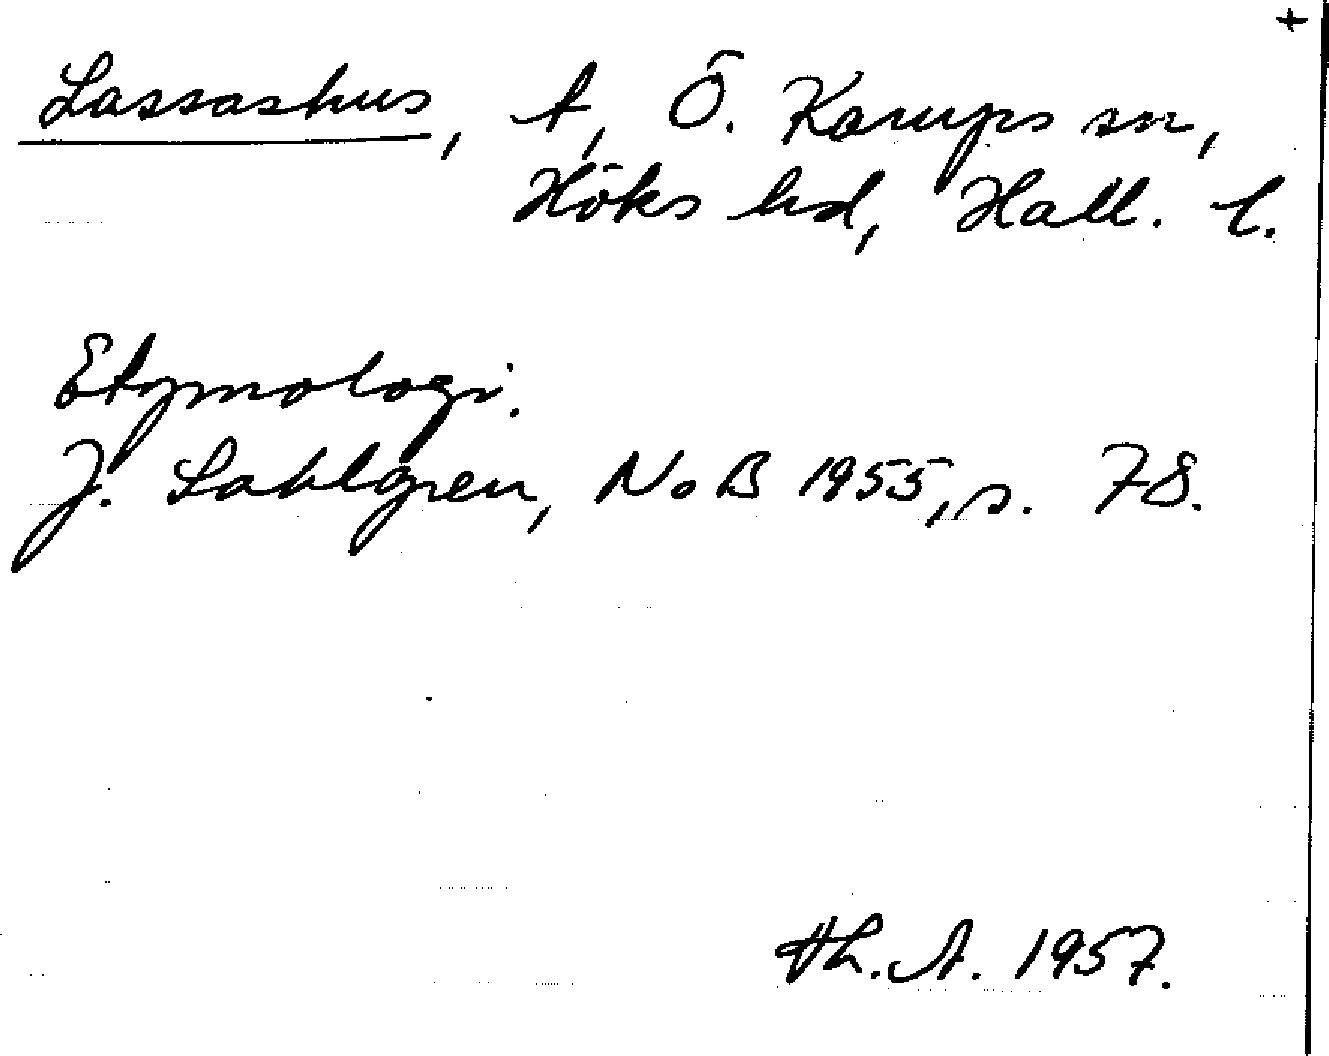 +
Lassashus, t, Ö. Karups sn,
Höks hd, Hall. l.
Etymologi.
J. Sahlgren, NoB 1955, s. 78.
Th. A. 1957.